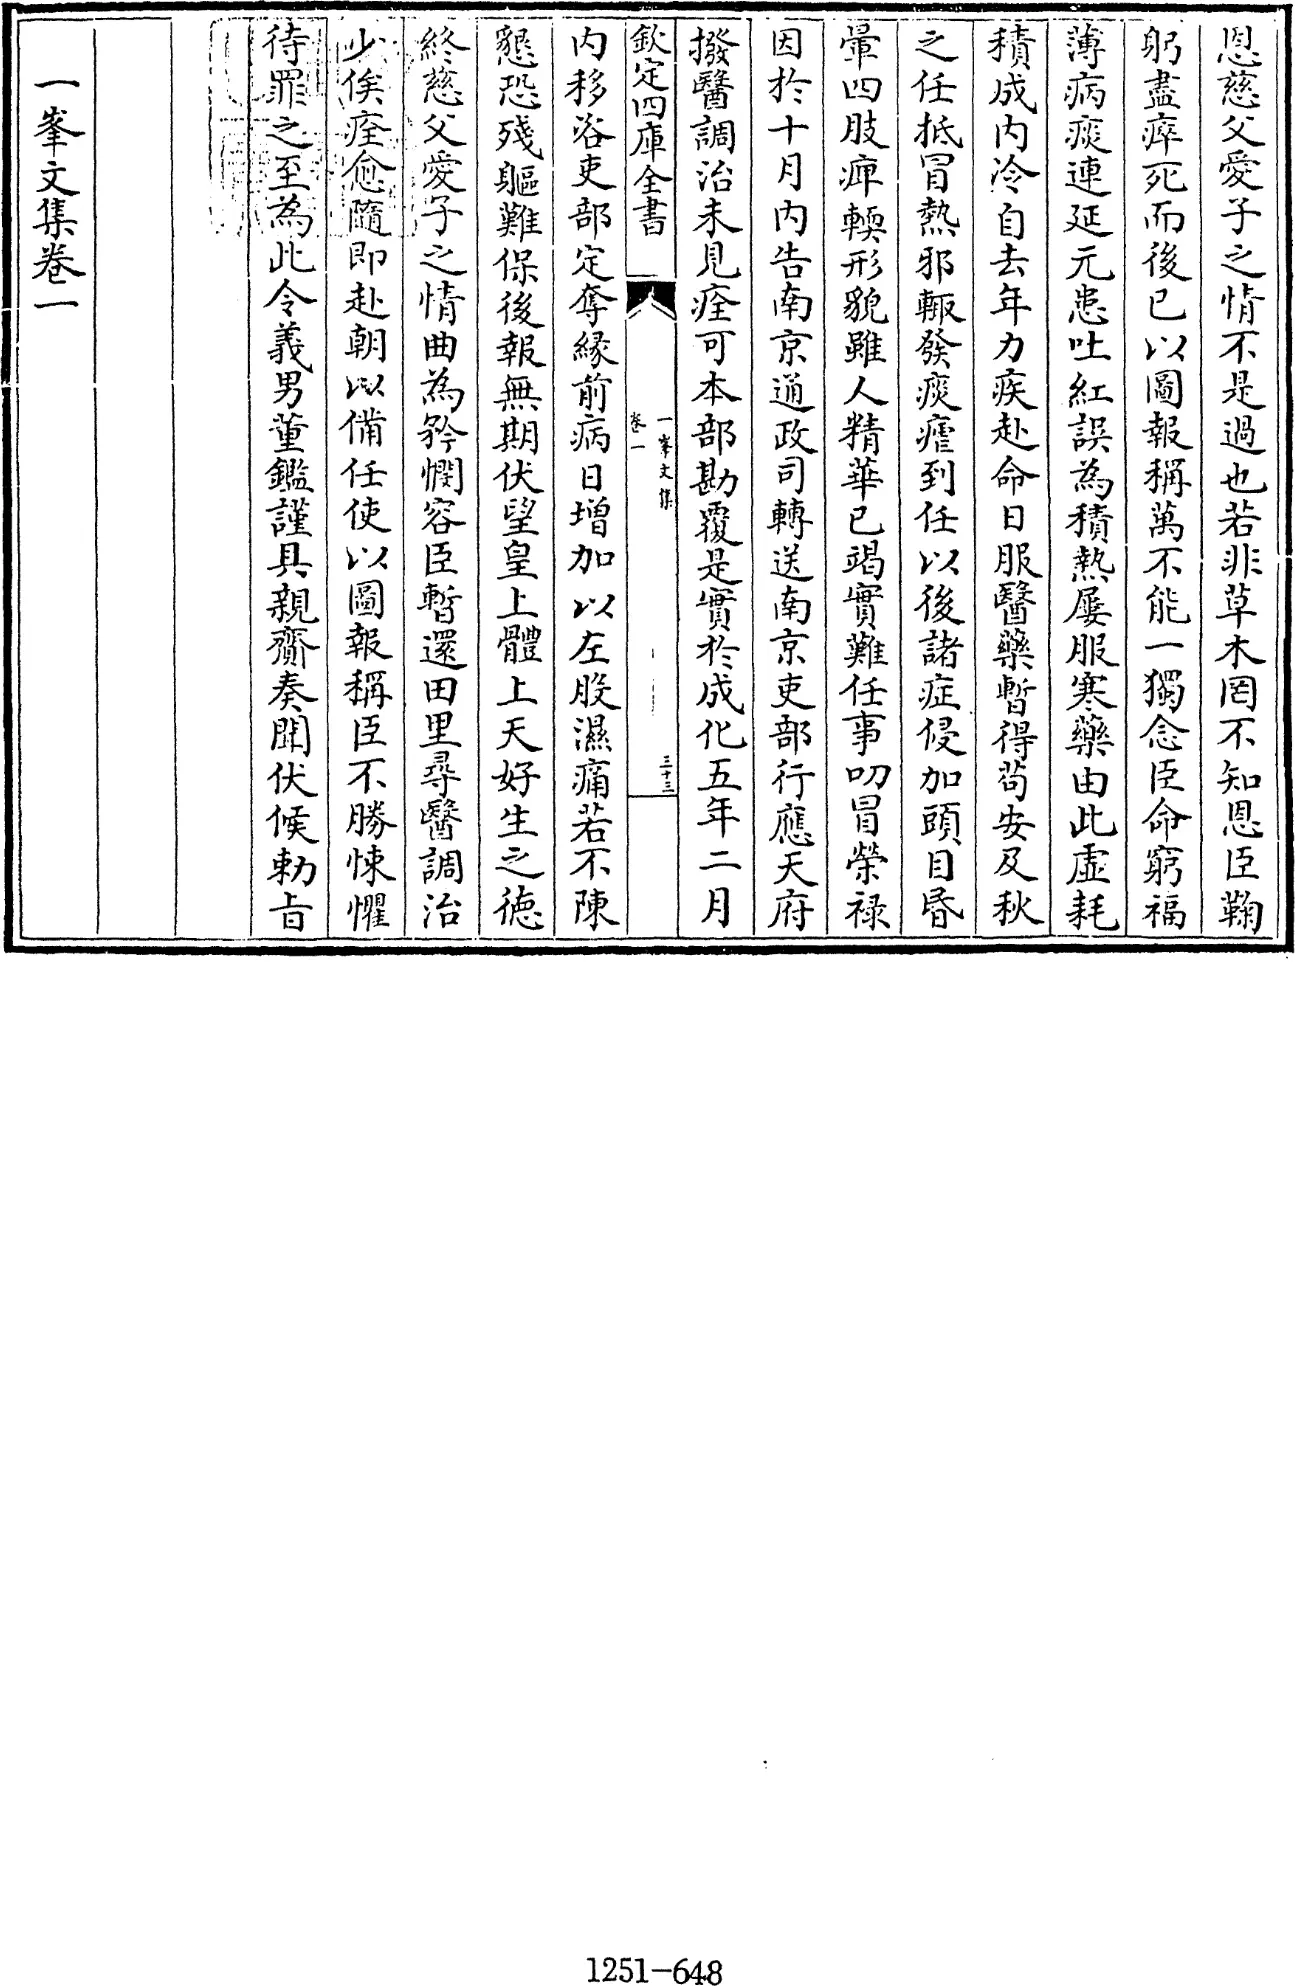 恩慈父愛子之情不是過也若非草木罔不知恩臣鞠
躬盡瘁死而後已以圖報稱萬不能一獨念臣命窮福
薄病痰連延元患吐紅誤為積熱屢服寒藥由此虛耗
積成内冷自去年力疾赴命日服醫藥暫得茍安及秋
之任抵冒熱邪輙發痰瘧到任以後諸症侵加頭目昏
暈四肢痺輭形貌雖人精華已竭實難任事叨冒榮禄
因於十月内告南京通政司轉送南京吏部行應天府
撥醫調治未見痊可本部勘覆是實於成化五年二月
欽定四庫全書
一峯文集
卷一
三十三
内移咨吏部定奪緣前病日增加以左股濕痛若不陳
懇恐殘軀難保後報無期伏望皇上體上天好生之德
終慈父愛子之情曲為矜憫容臣暫還田里尋醫調治
少俟痊愈隨即赴朝以備任使以圖報稱臣不勝悚懼
待罪之至為此令義男董鑑謹具親齎奏聞伏候勅㫖
一峯文集卷一
1251-648